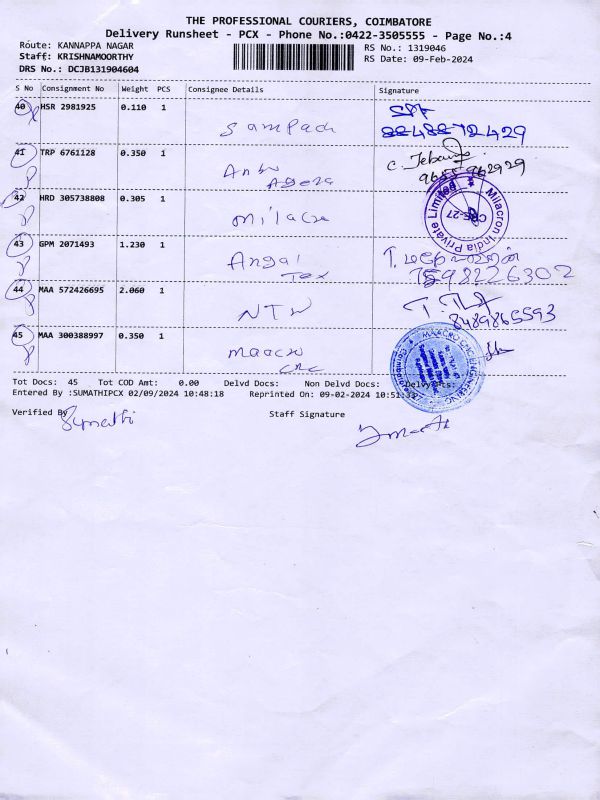 THE PROFESSIONAL COURIERS, COIMBATORE
Delivery Runsheet - PCX - Phone No.:0422-3505555 - Page No.:4
Route: KANNAPPA NAGAR
RS No.: 1319046
Staff: KRISHNAMOORTHY
RS Date: 09-Feb-2024
DRS No.: DCJB131904604
S No Consignment No Weight PCS Consignee Details Signature
40 HSR 2981925 0.110 1 Sampach
88488-72429
41 TRP 6761128 0.350 1 Anbu
C. Jebaraj
42 HRD 305738808 0.305 1 milacro
Milacron India Private Limited
43 GPM 2071493 1.230 1 Angal
Tex
7598226302
44 MAA 572426695 2.060 1 NTW
8489865593
45 MAA 300388997 0.350 1 maacro
CNC
MAACRO CNC ENGINEERING
Tot Docs: 45 Tot COD Amt: 0.00 Delvd Docs: Non Delvd Docs: Delvy Pts:
Entered By :SUMATHIPCX 02/09/2024 10:48:18 Reprinted On: 09-02-2024 10:51:33
Verified By Sumathi
Staff Signature